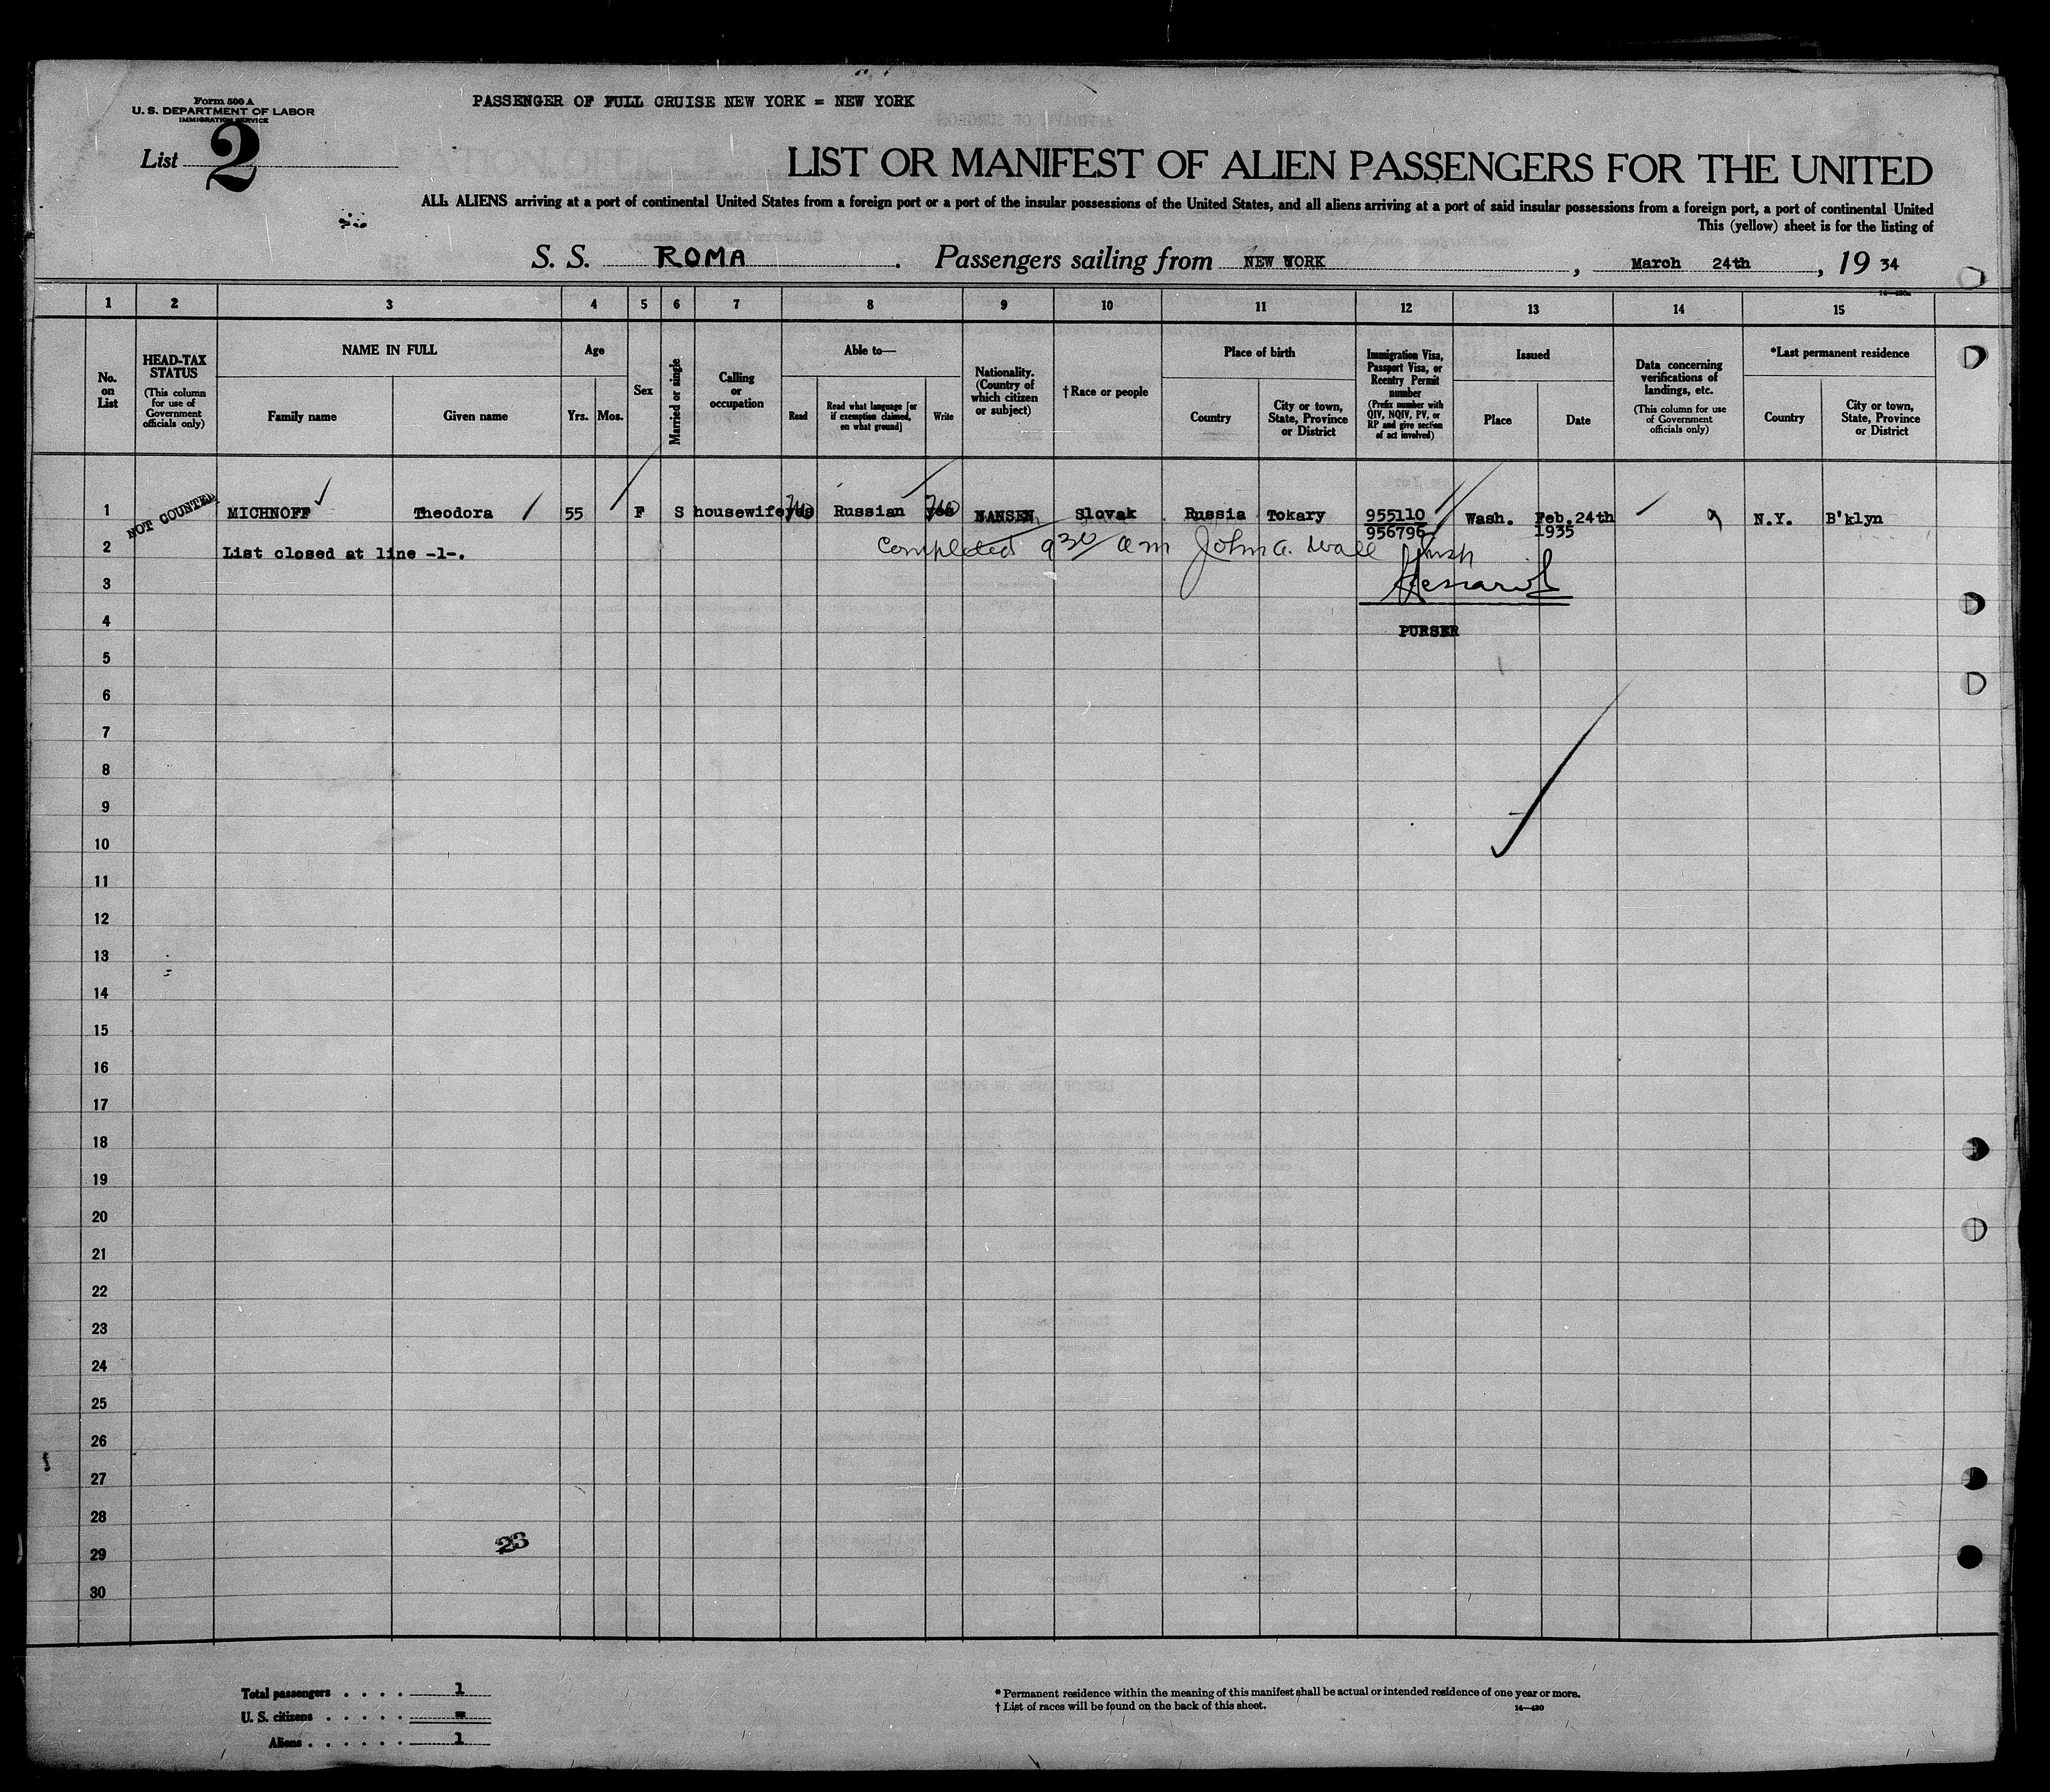 PASSENGER OF FULL CRUISE NEW YORK = NEW YORK
Form 500 A
U. S. DEPARTMENT OF LABOR
IMMIGRATION SERVICE
List 2
LIST OR MANIFEST OF ALIEN PASSENGERS FOR THE UNITED
ALL ALIENS arriving at a port of continental United States from a foreign port or a port of the insular possessions of the United States, and all aliens arriving at a port of said insular possessions from a foreign port, a port of continental United
This (yellow) sheet is for the listing of
S. S. ROMA . Passengers sailing from NEW WORK , March 24th , 19 34
1 2 3 4 5 6 7 8 9 10 11 12 13 14 15
No. on List
HEAD-TAX STATUS
(This column for use of Government officials only)
NAME IN FULL
Family name
Given name
Age
Yrs.
Mos.
Sex
Married or single
Calling or occupation
Able to—
Read
Read what language [or if exemption claimed, on what ground]
Write
Nationality. (Country of which citizen or subject)
†Race or people
Place of birth
Country
City or town, State, Province or District
Immigration Visa, Passport Visa, or Reentry Permit number
(Prefix number with QIV, NQIV, PV, or RP and give section of act involved)
Issued
Place
Date
Data concerning verifications of landings, etc.
(This column for use of Government officials only)
*Last permanent residence
Country
City or town, State, Province or District
1 NOT COUNTED MICHNOFF Theodora 55 F S housewife yes Russian yes NANSEN Slovak Russia Tokary 955110 Wash. Feb.24th N.Y. B'klyn
956796 1935
2 List closed at line -1-. Completed 9 30 am John A. Wall Insp
3
4 PURSER
5
6
7
8
9
10
11
12
13
14
15
16
17
18
19
20
21
22
23
24
25
26
27
28
29 23
30
Total passengers . . . . 1
U. S. citizens . . . . . =
Aliens . . . . . . 1
* Permanent residence within the meaning of this manifest shall be actual or intended residence of one year or more.
† List of races will be found on the back of this sheet.
14—430